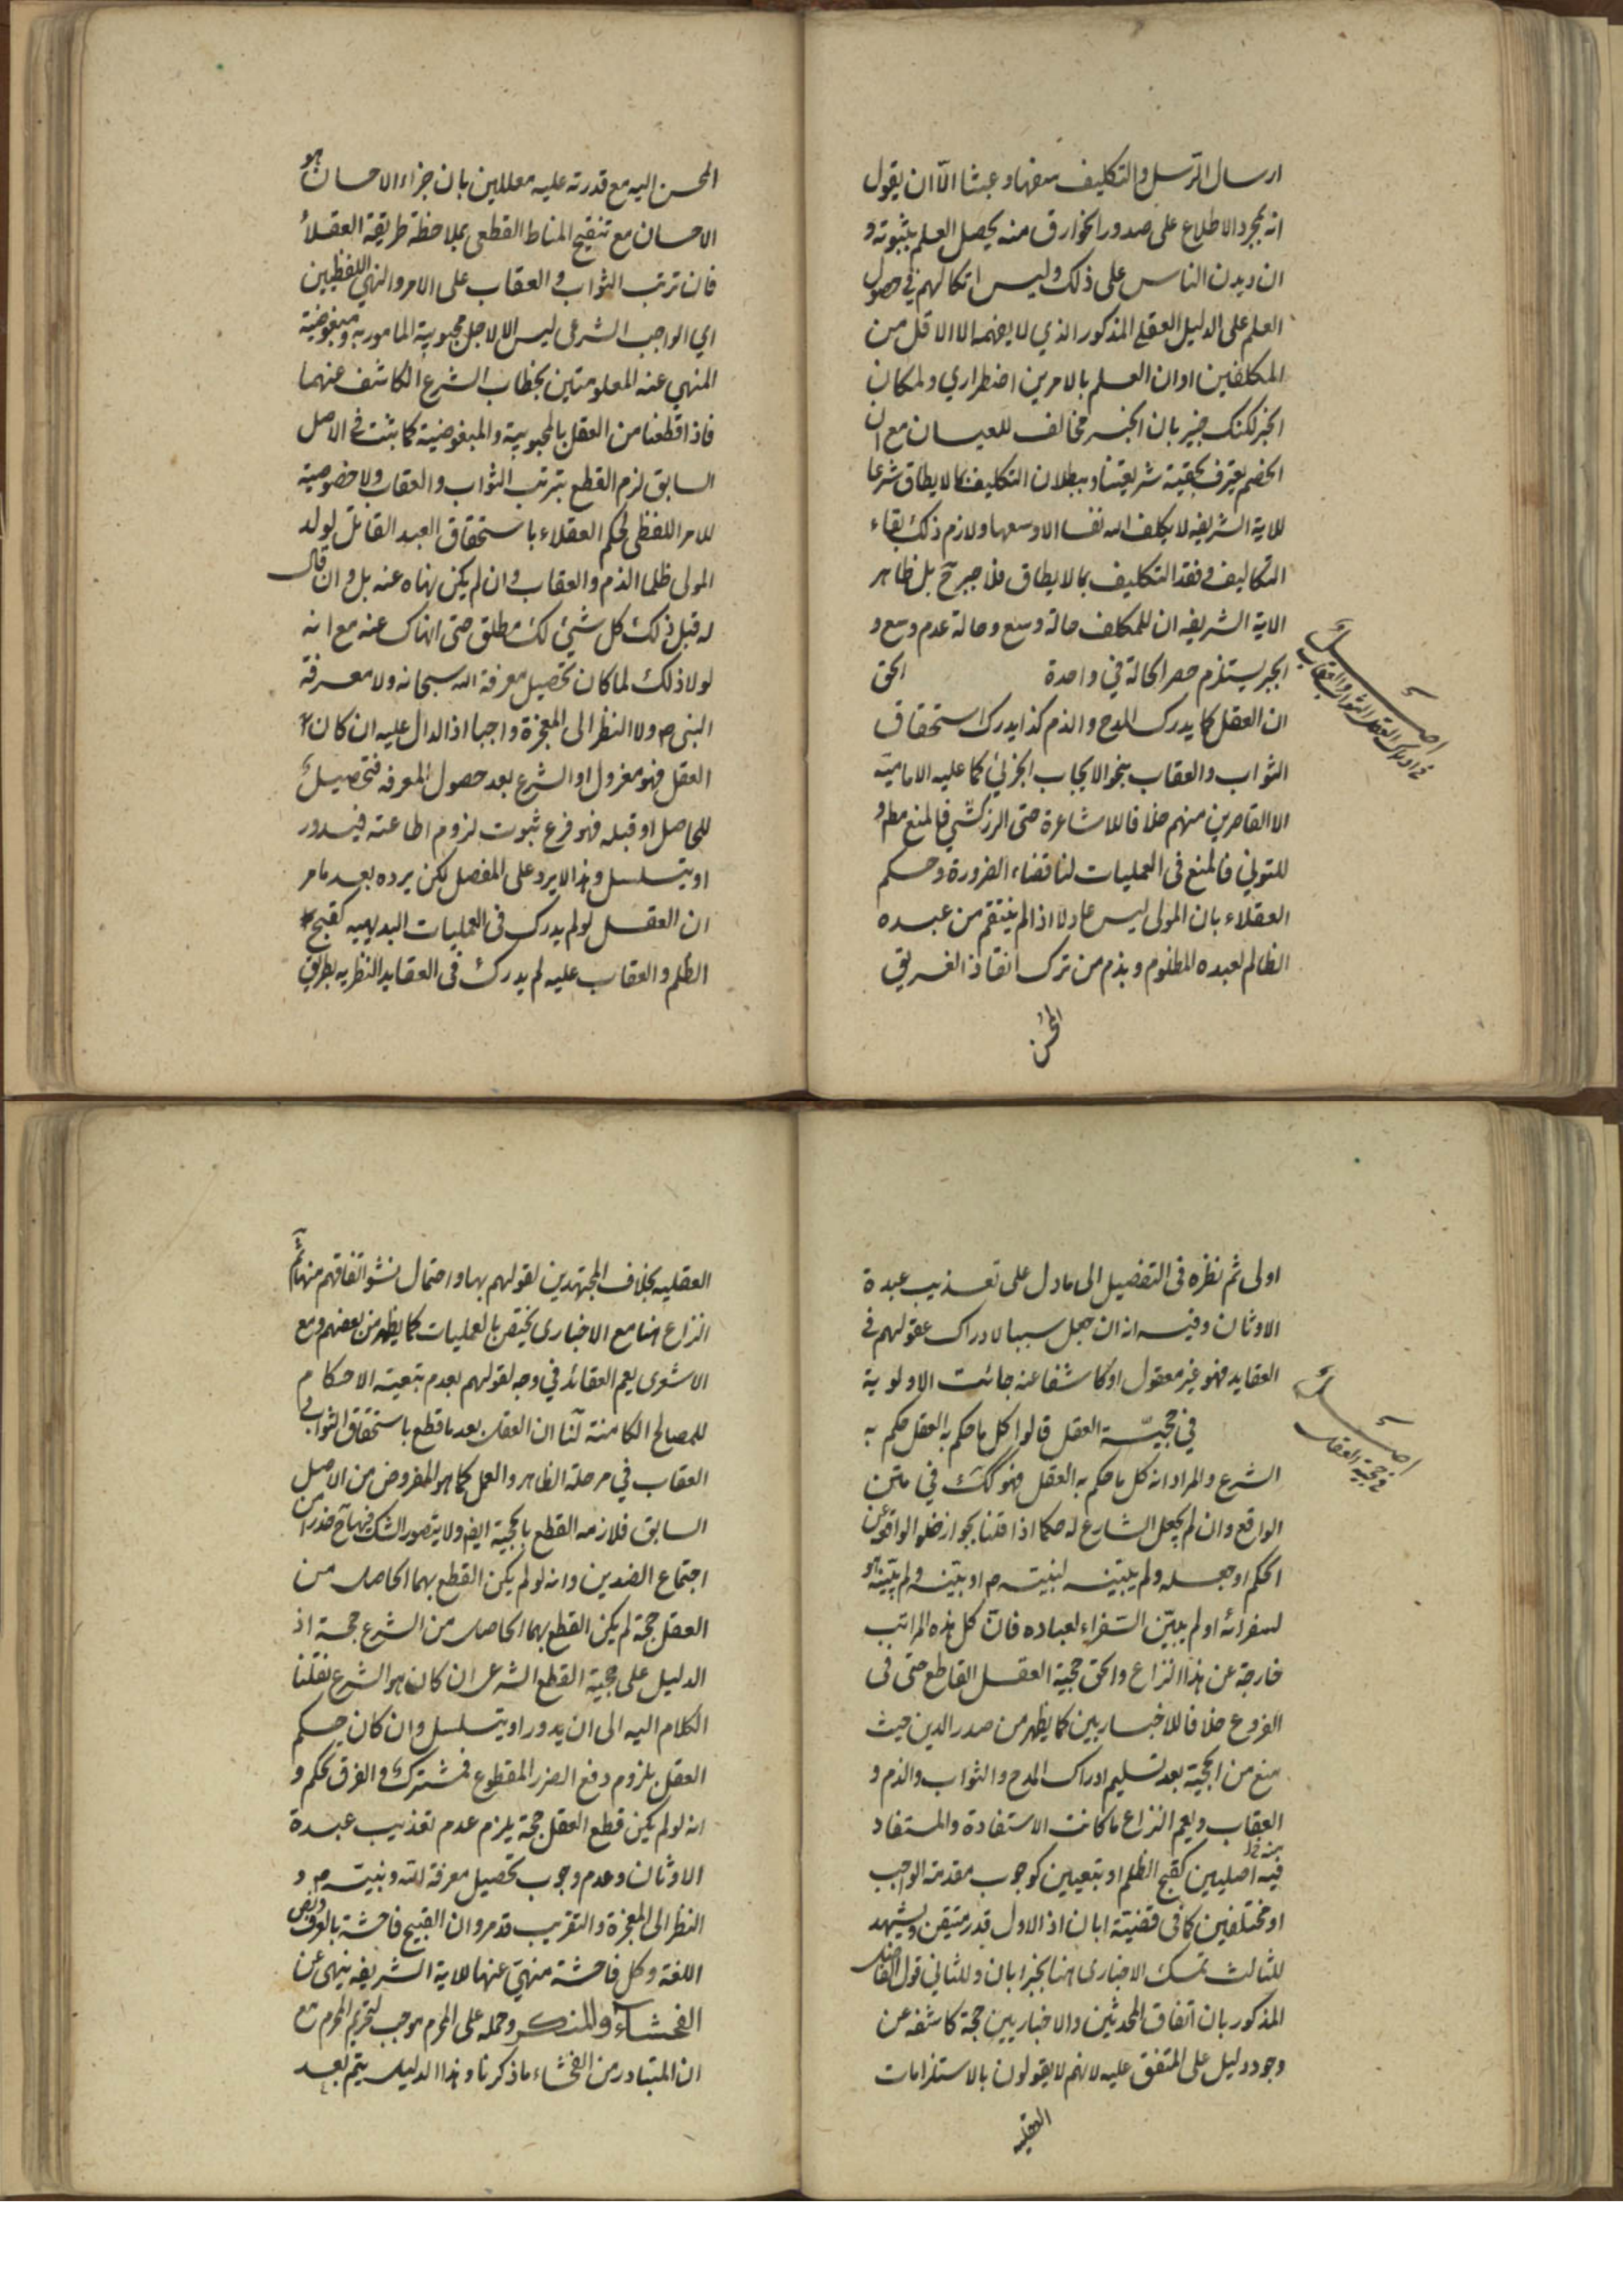 ارسال الرسل والتكليف سفها وعبثا الّا ان يقول
انه بمجرد الاطلاع على صدور الخوارق منه يحصل العلم بثبوته و
ان ديدن الناس على ذلك وليس اتكالهم في حصول
العلم على الدليل العقلي المذكور الذي لا يفهمه الا الاقل من
المكلفين او ان العلم بالامرين اضطراري ولمكان
الجبر لكنك خبير بان الجبر مخالف للعيان مع ان
الخصم يعترف بحقية شريعتنا وببطلان التكليف بما لا يطاق شرعا
للاية الشريفه لا يكلف الله نفسا الا وسعها ولازم ذلك بقاء
التكاليف وفقد التكليف بما لا يطاق فلا جبر ح بل ظاهر
الاية الشريفه ان للمكلف حالة وسع وحالة عدم وسع و
الجبر يستلزم حصر الحالة في واحدة الحق
اصل
في ادراك العقل الثواب والعقاب
ان العقل كما يدرك المدح والذم كذا يدرك استحقاق
الثواب والعقاب بنحو الايجاب الجزئي كما عليه الامامية
الا القاصرين منهم خلافا للاشاعرة حتى الزركشي فالمنع مط و
للتوني فالمنع في العمليات لنا قضاء الضرورة وحكم
العقلاء بان المولى ليس عادلا اذا لم ينتقم من عبده
الظالم لعبده المظلوم وبذم من ترك انقاذ الغريق
المحسن
المحسن اليه مع قدرته عليه معللين بان جزاء الاحسان هو
الاحسان مع تنقيح المناط القطعي بملاحظة طريقة العقلاء
فان ترتب الثواب والعقاب على الامر والنهي اللفظيين
اي الواجب الشرعي ليس الا لاجل محبوبية المامور به ومبغوضية
المنهي عنه المعلومتين بخطاب الشرع الكاشف عنهما
فاذا قطعنا من العقل بالمحبوبية والمبغوضية كما ثبت في الاصل
السابق لزم القطع بترتب الثواب والعقاب ولا خصوصية
للامر اللفظي لحكم العقلاء باستحقاق العبد القاتل لولد
المولى ظلما الذم والعقاب وان لم يكن نهاه عنه بل وان قال
له قبل ذلك كل شيء لك مطلق حتى انهاك عنه مع انه
لولا ذلك لما كان تحصيل معرفة الله سبحانه ولا معرفة
النبي ص ولا النظر الى المعجزة واجبا اذ الدال عليه ان كان
العقل فهو معزول او الشرع بعد حصول المعرفه فتحصيل
للحاصل او قبله فهو فرع ثبوت لزوم اطاعته فيدور
او يتسلسل وهذا لا يرد على المفصل لكن يرده بعد ما مر
ان العقل لو لم يدرك في العمليات البديهيه كقبح
الظلم والعقاب عليه لم يدرك في العقايد النظريه بطريق
اولى ثم نظره في التفصيل الى ما دل على تعذيب عبدة
الاوثان وفيه انه ان جعل سببا لادراك عقولهم في
العقايد فهو غير معقول او كاشفا عنه جائت الاولوية
اصل
في حجية العقل
في حجيّة العقل قالوا كل ما حكم به العقل حكم به
الشرع والمراد انه كل ما حكم به العقل فهو كك في متن
الواقع وان لم يجعل الشارع له حكما اذا قلنا بجواز خلو الواقع عن
الحكم او جعله ولم يبينه لنبيه ص او بينه ولم يبينه هو
لسفرائه او لم يبيّن السفراء لعباده فانّ كل هذه المراتب
خارجة عن هذا النزاع والحق حجية العقل القاطع حتى في
الفروع خلافا للاخباريين كما يظهر من صدر الدين حيث
منع من الحجية بعد تسليم ادراك المدح والثواب والذم و
العقاب ويعم النزاع ما كانت الاستفادة والمستفاد
منه
فيه اصليين كقبح الظلم او تبعيين كوجوب مقدمة الواجب
او مختلفين كما في قضيّة ابان اذ الاول قدر متيقن ويشهد
للثالث تمسك الاخباري هنا بخبر ابان وللثاني قول الفاضل
المذكور بان اتفاق المحدثين والاخباريين حجة كاشفه عن
وجود دليل على المتفق عليه لانهم لا يقولون بالاستلزامات
العقليه
العقليه بخلاف المجتهدين لقولهم بها واحتمال نشو اتفاقهم منها ثم
النزاع هنا مع الاخباري يختص بالعمليات كما يظهر من بعضهم ومع
الاشعري يعم العقائد في وجه لقولهم بعدم تبعية الاحكام
للمصالح الكامنة لنا ان العقل بعد ما قطع باستحقاق الثواب و
العقاب في مرحلة الظاهر والعمل كما هو المفروض من الاصل
السابق فلازمه القطع بالحجية ايض ولا يتصور الشك فيها ح حذرا من
اجتماع الضدين وانه لو لم يكن القطع بهما الحاصل من
العقل حجة لم يكن القطع بهما الحاصل من الشرع حجة اذ
الدليل على حجية القطع الشرعي ان كان هو الشرع نقلنا
الكلام اليه الى ان يدور او يتسلسل وان كان حكم
العقل بلزوم دفع الضرر المقطوع فمشترك والفرق تحكم و
انه لو لم يكن قطع العقل حجة يلزم عدم تعذيب عبدة
الاوثان وعدم وجوب تحصيل معرفة الله ونبيه ص و
النظر الى المعجزة والتقريب قد مر وان القبيح فاحشة بالعرف و
اللغة وكل فاحشة منهيّ عنها للاية الشريفه ينهى عن
الفحشاء والمنكر وحمله على المحرم موجب لتحريم المحرم مع
ان المتبادر من الفحشاء ما ذكرنا وهذا الدليل يتم بعد